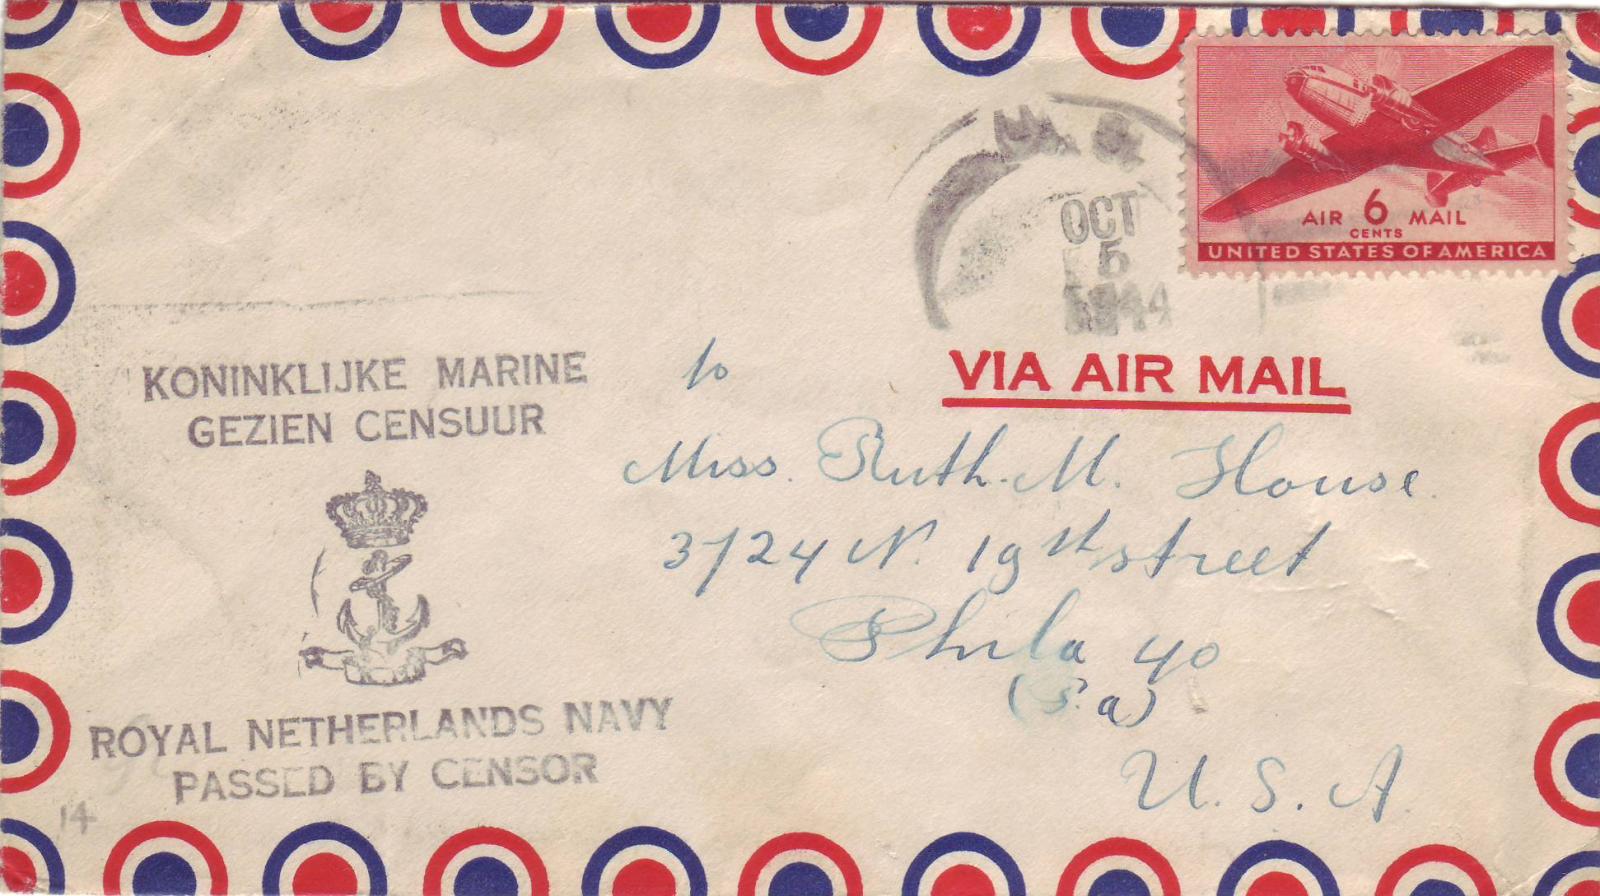 U. S.
OCT
5
1944
AIR 6 MAIL
CENTS
UNITED STATES OF AMERICA
VIA AIR MAIL
KONINKLIJKE MARINE
GEZIEN CENSUUR
ROYAL NETHERLANDS NAVY
PASSED BY CENSOR
14
to
Miss. Ruth. M. House.
3724 N. 19th street
Phila 40
(P.a)
U. S. A.